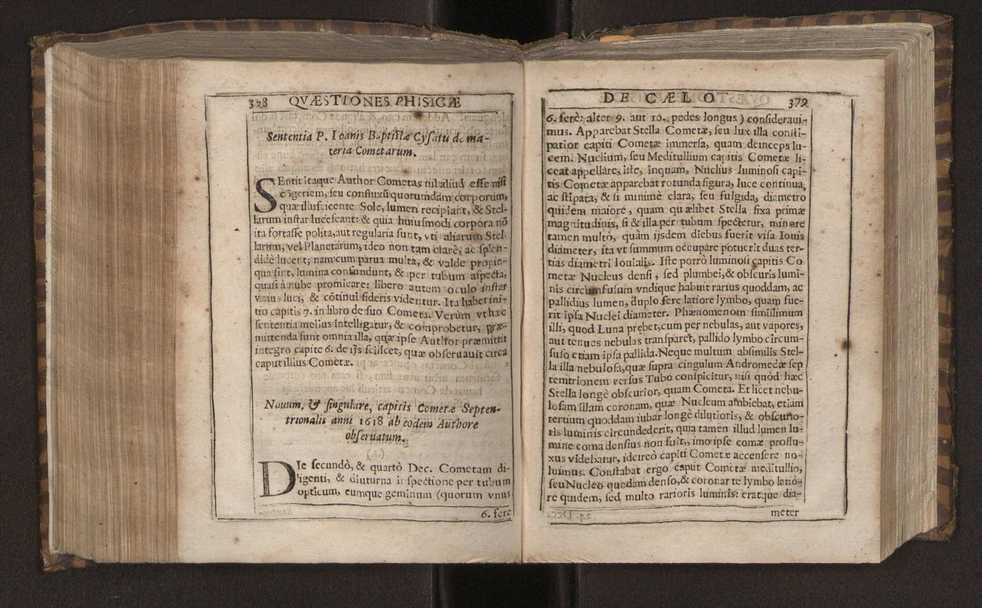 378 QVÆSTIONES PHISICÆ
Sententia P. Ioanis Baptistæ Cysati de ma-
teria Cometarum.
SEntit itaque Author Cometas nihil aliud esse nisi
cōgeriem, seu confluxū quorumdam corporum,
quæ illustricente Sole, lumen recipiant, & Stel-
larum instar lucescant: & quia huiusmodi corpora nō
ita fortasse polita, aut regularia sunt, vti aliarum Stel-
larum, vel Planetarum, ideo non tam clarè, ac splen-
didè lucent; nam cum parua multa, & valde propin-
qua sint, lumina confundunt, & per tubum aspecta,
quasi à nube promicare: libero autem oculo instar
vnius luci, & cōtinui sideris videntur. Ita habet ini-
tio capitis 7. in libro de suo Cometa. Verùm vt hæc
sententia melius intelligatur, & comprobetur, præ-
mittenda sunt omnia illa, quæ ipse Author præmittit
integro capite 6. de ijs scilicet, quæ obseruauit circa
caput illius Cometæ.
Nouum, & singulare, capitis Cometæ Septen-
trionalis anni 1618 ab eodem Authore
obseruatum.
DIe secundò, & quartò Dec. Cometam di-
ligenti, & diuturna inspectione per tubum
opticum, eumque geminum (quorum vnus
6. ferè
DE CÆLO 379
6. ferè: alter 9. aut 10. pedes longus) considerauī-
mus. Apparebat Stella Cometæ, seu lux illa consti-
patior capiti Cometæ immersa, quam deinceps lu-
cem. Nuclium, seu Meditullium capitis Cometæ li-
ceat appellare, iste, inquam, Nuclius luminosi capi-
tis Cometæ apparebat rotunda figura, luce continua,
ac stipata, & si minimè clara, seu fulgida, diametro
quidem maiore, quam quælibet Stella fixa primæ
magnitudinis, si & illa per tubum spectetur, minore
tamen multò, quàm ijsdem diebus fuerit visa Iouis
diameter, ita vt summum occupare potuerit duas ter-
tias diametri Iouialis. Iste porrò luminosi capitis Co
metæ Nucleus densi, sed plumbei, & obscuris lumi-
nis circumfusum vndique habuit rarius quoddam, ac
pallidius lumen, duplo ferè latiore lymbo, quam fue-
rit ipsa Nuclei diameter. Phænomenom simillimum
illi, quod Luna præbet, cum per nebulas, aut vapores,
aut tenues nebulas transparet, pallido lymbo circum-
fuso etiam ipsa pallida. Neque multum absimilis Stel-
la illa nebulosa, quæ supra cingulum Andromedæ sep
temtrionem versus Tubo conspicitur, nisi quòd hæc
Stella longè obscurior, quam Cometa. Et licet nebu-
losam illam coronam, quæ Nucleum ambiebat, etiam
tertium quoddam iubar longè dilutioris, & obscurio-
ris luminis circundederit, quia tamen illud lumen lu-
mine coma densius non fuit, imo ipse comæ proflu-
xus videbatur, idcircò capiti Cometæ accensere no-
luimus. Constabat ergo caput Cometæ meditullio,
seu Nucleo quodam denso, & coronante lymbo latio-
re quidem, sed multo rarioris luminis: eratque dia-
meter